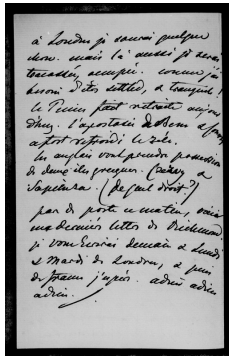 à Londres je saurai quelque
chose. mais là aussi je serai
tracassée, occupée. comme j'ai
besoin d'être settled, & tranquille!
le Prince fait retraite aujour
d'hui. l'apostasie de
a fort refroidi le zèle.
les anglais vont prendre possession
de deux îles grecques. &
Sapienza. (de quel droit?)
pas de poste ce matin, voici
ma dernière lettre de Richmond
je vous écrirai demain & Lundi
& Mardi de Londres, & puis
de france j'espère. adieu adieu
adieu.